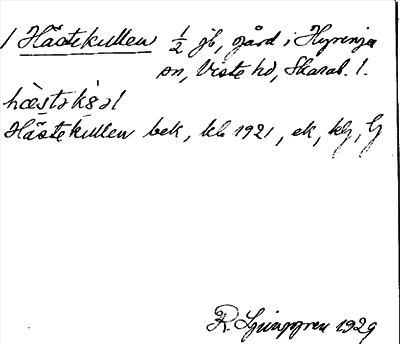 1 Hästekullen ½ jb, gård i Hyringa
sn, Viste hd, Skarab. l.
hæ̀stəkɵ̀əl
Hästekullen bek, kb 1921, ek, kg, G
R. Ljunggren 1929